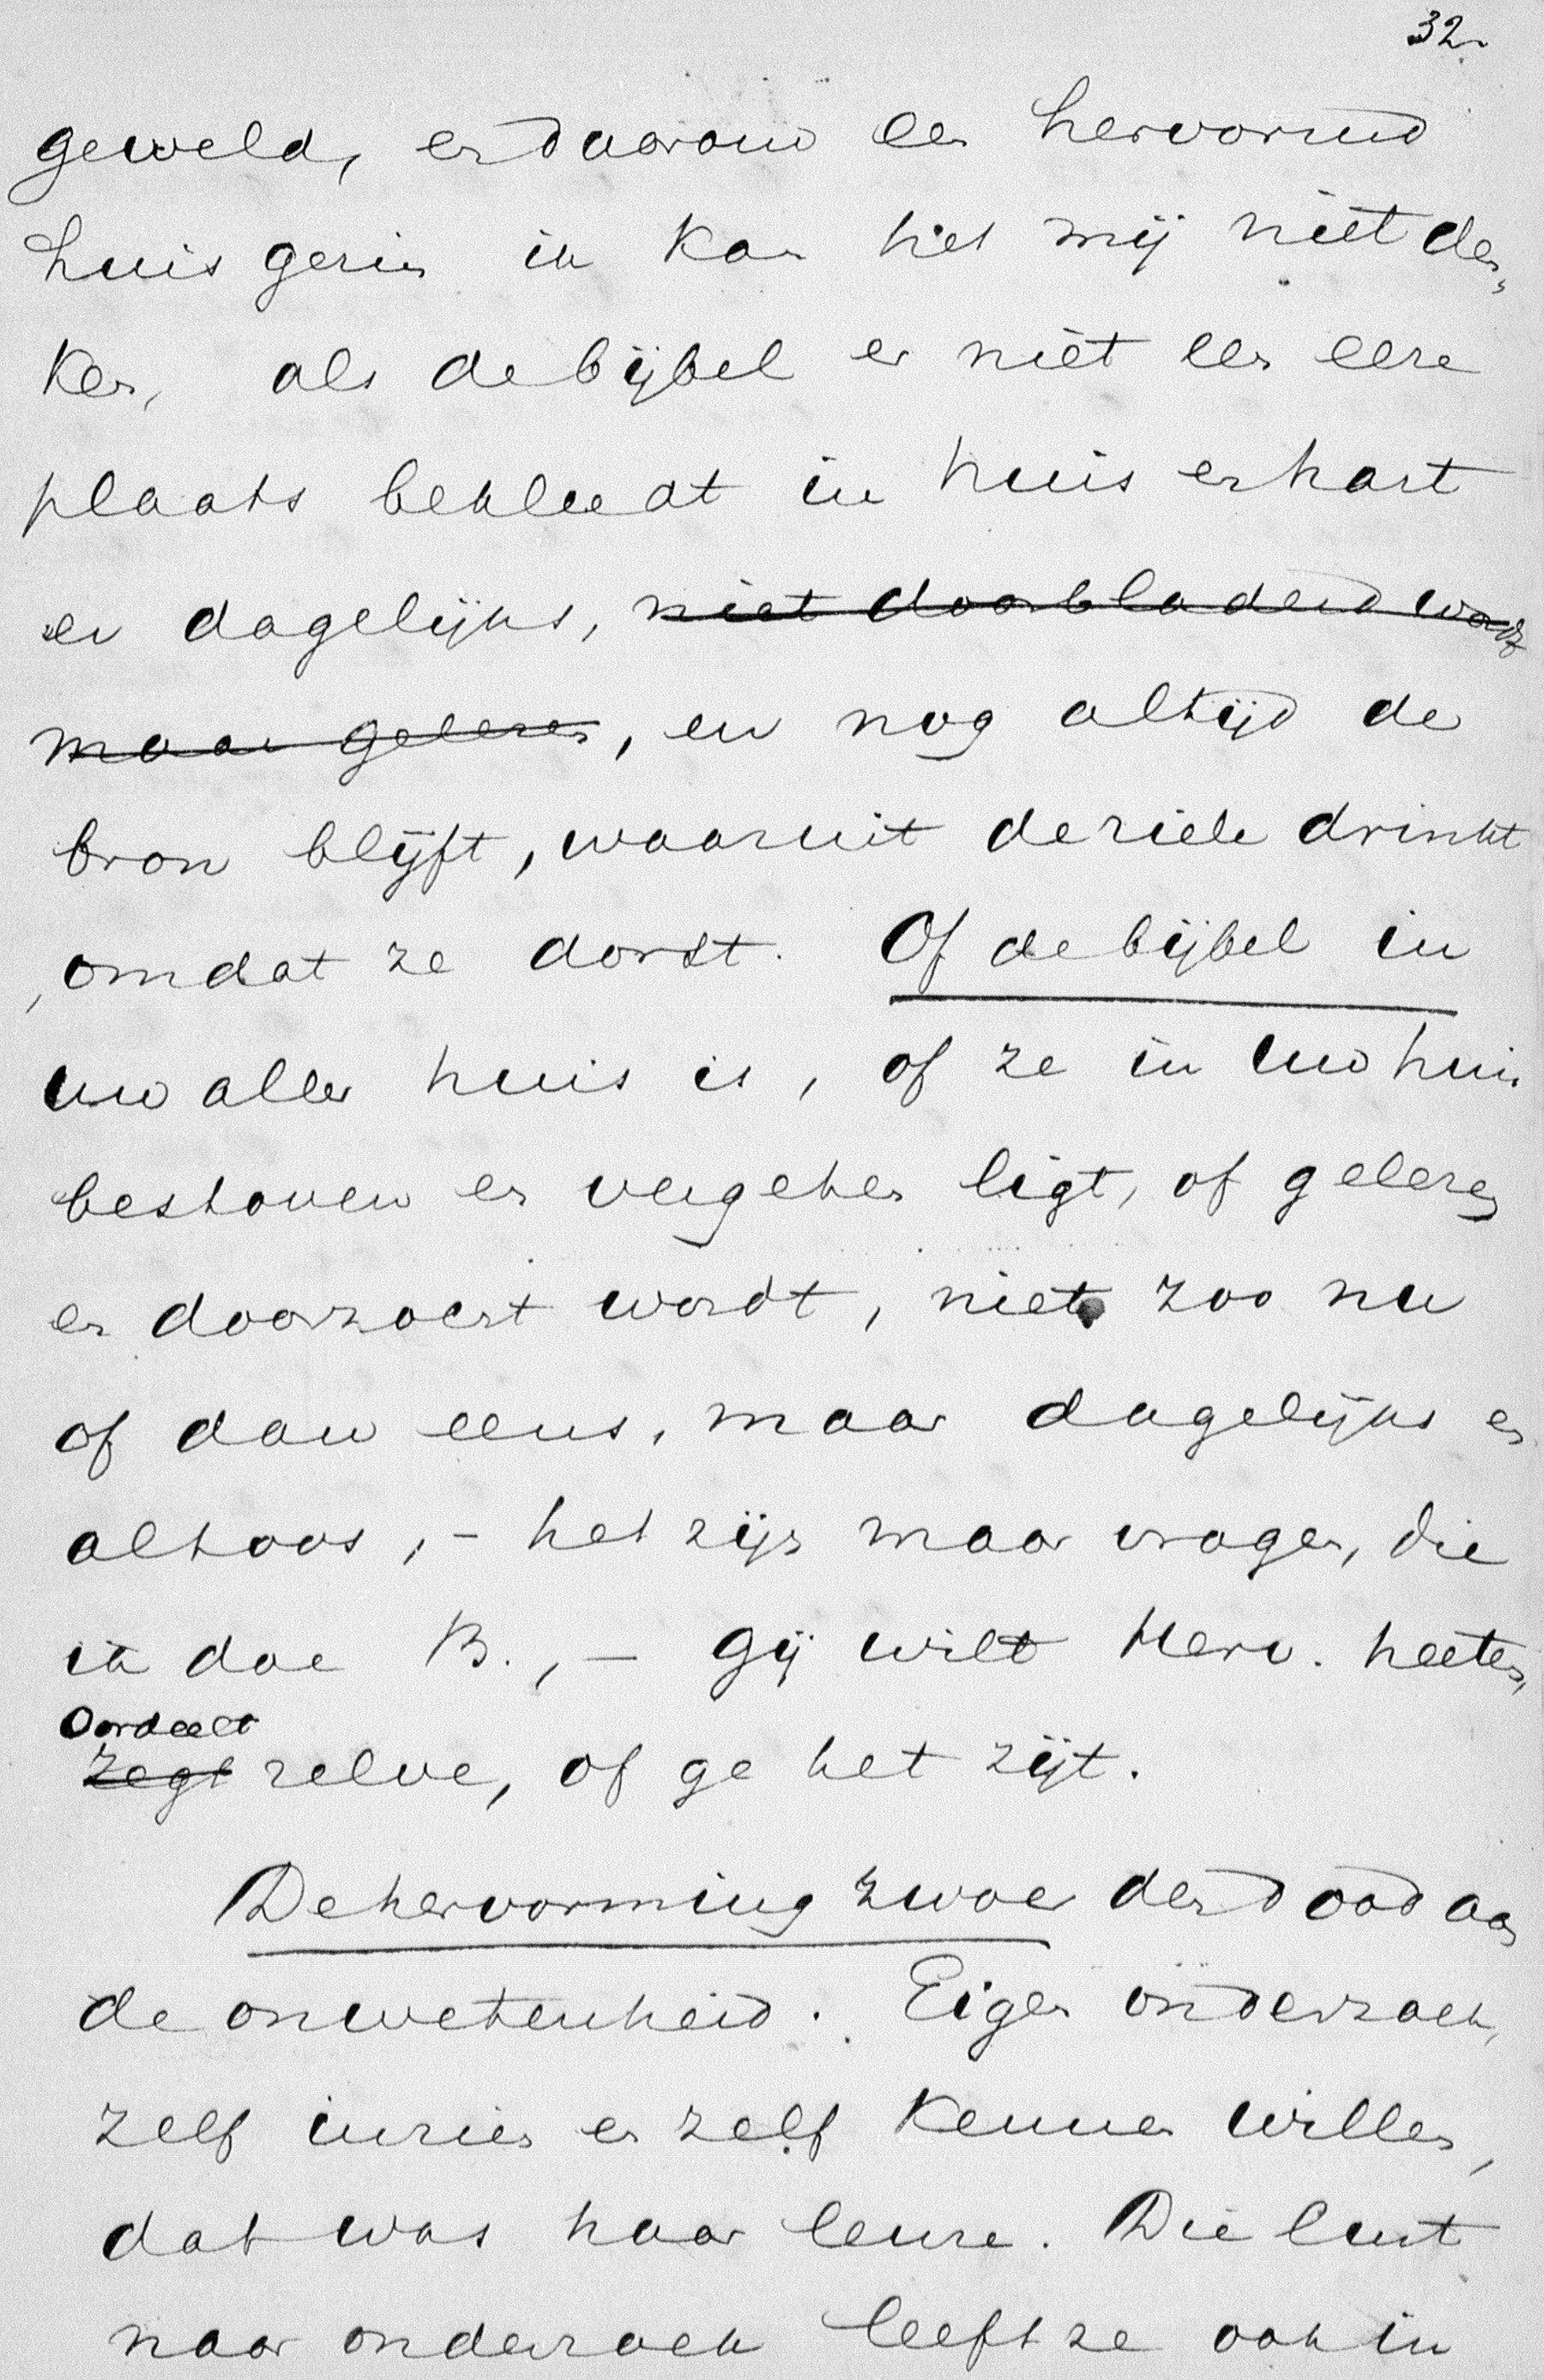 32.
geweld, en daarom een hervormd
huisgezin ik kan het mij niet den„
ken, als de bijbel er niet een eere
plaats bekleedt in huis en hart
en dagelijks, niet doorbladerd wordt
maar gelezen, en nog altijd de
bron blijft, waaruit de ziele drinkt
, omdat ze dorst. Of de bijbel in
uw aller huis is, of ze in uw huis
bestoven en vergeten ligt, of gelezen
en doorzocht wordt, niet zoo nu
of dan eens, maar dagelijks en
altoos, – het zijn maar vragen, die
ik doe B., – gij wilt Herv. heeten,
Oordeelt
zegt zelve, of ge het zijt.
De hervorming zwoer den dood aan
de onwetenheid. Eigen onderzoek,
zelf inzien en zelf kennen willen,
dat was haar leuze. Die lust
naar onderzoek leeft ze ook in